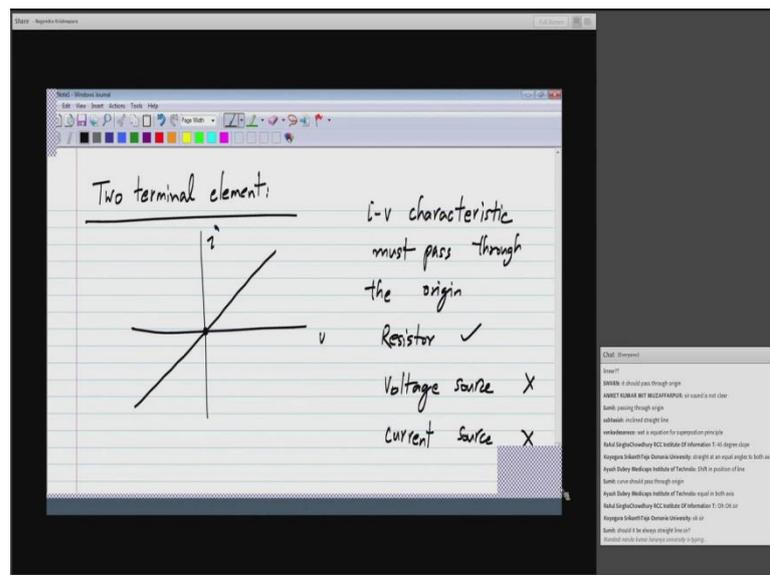 Share - Nagendra Krishnapura
Full Screen
Note1 - Windows Journal
Edit View Insert Actions Tools Help
Page Width
Two terminal element:
i
v
i-v characteristic
must pass through
the origin
Resistor ✓
Voltage source X
Current source X
Chat (Everyone)
linear??
SWARN: it should pass through origin
ANIKET KUMAR MIT MUZAFFARPUR: sir sound is not clear
Sumit: passing through origin
subhasish: inclined straight line
wat is equation for superposition principle
Rahul SinghaChowdhury RCC Institute Of Information T: 45 degree slope
Koyegura SrikanthTeja Osmania University: straight at an equal angles to both axi
Ayush Dubey Medicaps Institute of Technolo: Shift in position of line
Sumit: curve should pass through origin
Ayush Dubey Medicaps Institute of Technolo: equal in both axis
Rahul SinghaChowdhury RCC Institute Of Information T: OK OK sir
Koyegura SrikanthTeja Osmania University: ok sir
Sumit: should it be always straight line sir?
university is typing..